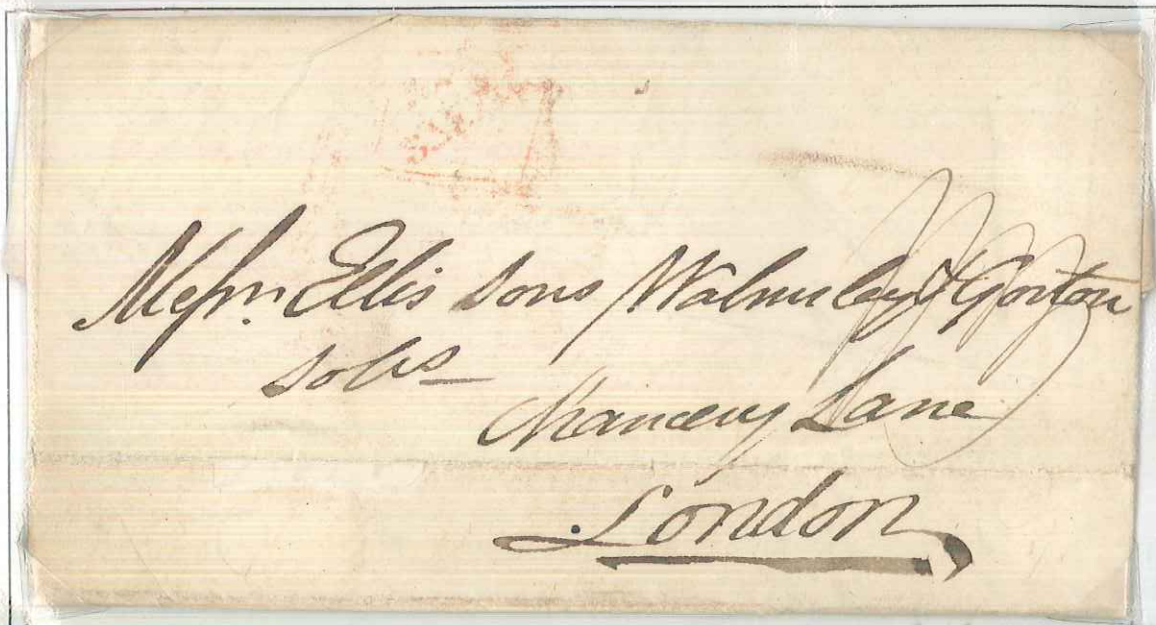 Messrs. Ellis Sons Walmsley & Gorton
Solrs
Chancery Lane
London